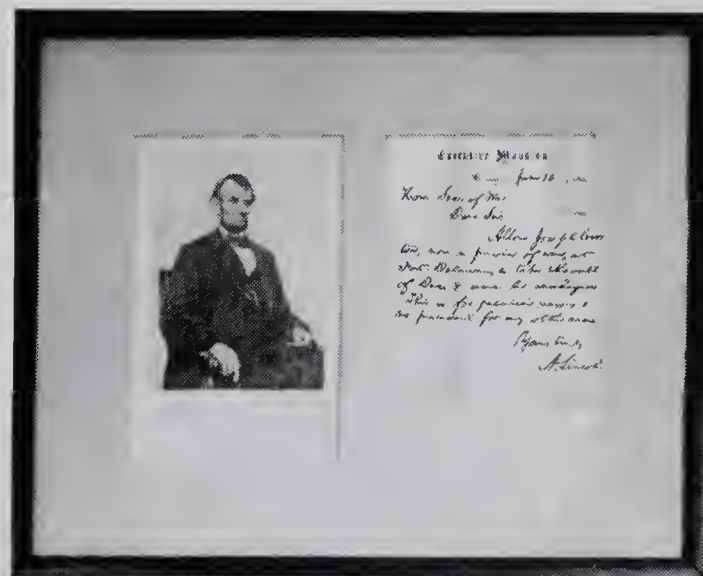 Executive Mansion
June 16
Hon. Sec. of War
Dear Sir
Allow Joseph
now a prisoner of war, at
Fort Delaware, to take the oath
of Dec. 8 and be discharged
This is for
no precedent for any other case
Yours truly
A. Lincoln